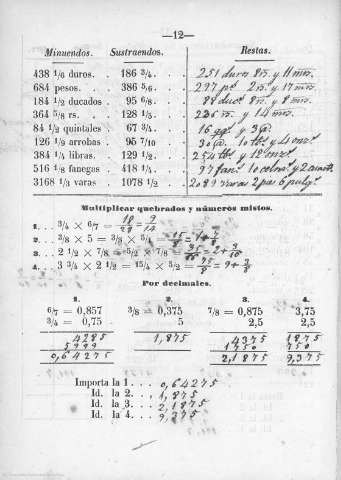 —12—
Minuendos. Sustraendos. Restas.
438 1/8 duros. . 186 3/4. . . 251 duros 8 rs. y 11 mrs.
684 pesos. . . 386 5/6. . . 297 ps. 2 rs. y 17 mrs.
184 1/2 ducados . 95 6/8. . . 88 duc. 8 rs. y 8 mrs.
364 5/8 rs. . . 128 1/5. . . 236 rs. y 14 mrs.
84 1/2 quintales . 67 3/4. . . 16 qq. y 3 @.
126 1/9 arrobas . 95 7/10 . . 30 @. 10 lbs. y 4 onz.
384 1/4 libras. . 129 1/2. . . 254 lbs. y 12 onz.
516 1/8 fanegas . 418 1/4. . .
3168 1/3 varas . 1078 1/2 . . 2089 varas 2 pies 6 pulg.
Multiplicar quebrados y números mistos.
1. . . 3/4 × 6/7 = 18/28 = 9/14
2. . . 3/8 × 5 = 3/8 × 5/1 = 15/8 = 1 + 7/8
3. . . 2 1/2 × 7/8 = 5/2 × 7/8 = 35/16 = 2 + 3/16
4. . . 3 3/4 × 2 1/2 = 15/4 × 5/2 = 75/8 = 9 + 3/8
Por decimales.
1. 2. 3. 4.
6/7 = 0,857 3/8 = 0,375 7/8 = 0,875 3,75
3/4 = 0,75 . 5 2,5 2,5
4285 1,875 4375 1875
5999 1750 750
0,64275 2,1875 9,375
Importa la 1 . . . 0,64275
Id. la 2. . . 1,875
Id. la 3. . . 2,1875
Id. la 4. . . 9,375